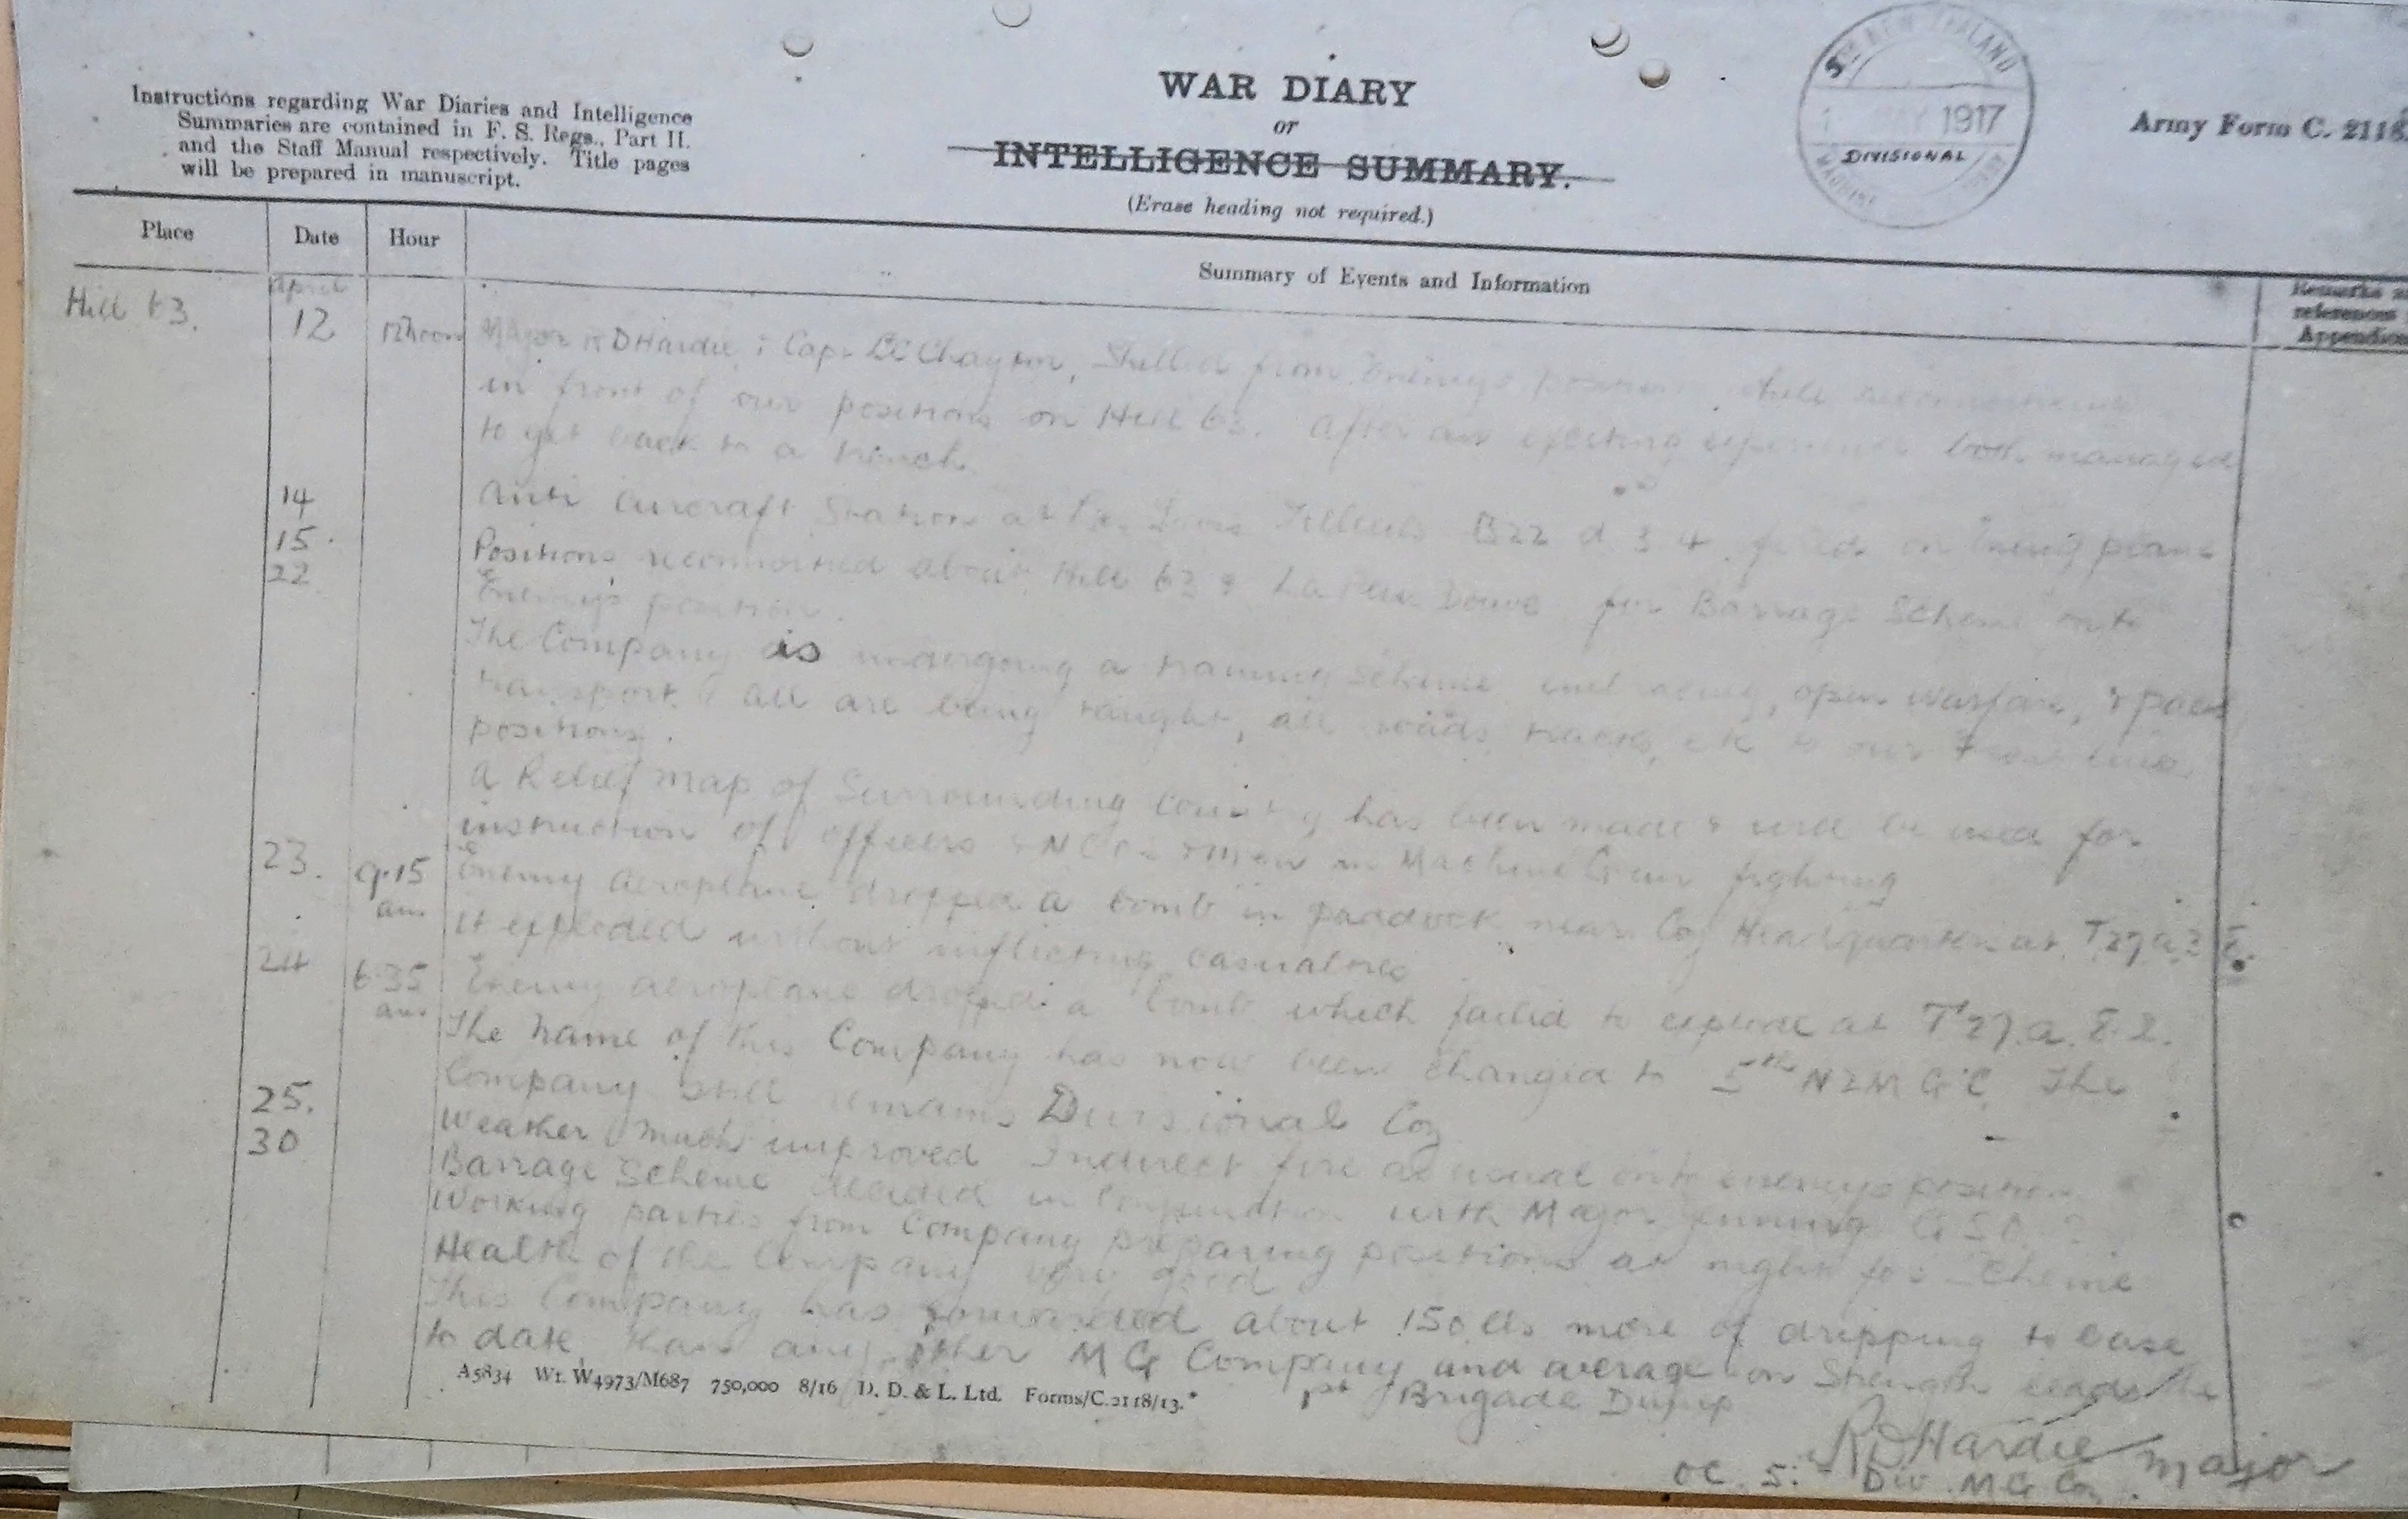 Instructions regarding War Diaries and Intelligence
Summaries are contained in F. S. Regs., Part II.
and the Staff Manual respectively. Title pages
will be prepared in manuscript.
WAR DIARY
or
INTELLIGENCE SUMMARY.
(Erase heading not required.)
5th NEW ZEALAND
MAY 1917
DIVISIONAL
MACHINE
Army Form C. 2118.
Place Date Hour Summary of Events and Information
Remarks
references
Appendices
April
Hill 63. 12 12 noon Major R D Hardie, & Capt Chaytor, Shelled from Enemy's position
in front of our positions on Hill 63. After an exciting experience both managed
to get back to a trench.
14 Anti Aircraft Station at B22 d fired on Enemy plane
15. Positions reconnoitred about Hill 63 & La Douve for Barrage Scheme onto
22 Enemy's position.
The Company is undergoing a training scheme embracing, open warfare, & pack
transport & all are being taught, all roads, tracks, etc to our Front line
positions.
A Relief map of Surrounding Country has been made & will be used for
instruction of officers & NCOs & men in Machine Gun fighting
23. 9.15 am Enemy aeroplane dropped a bomb in paddock near Coy Headquarters at T27a
It exploded without inflicting casualties
24 6.35 am Enemy aeroplane dropped a bomb which failed to explode at T27.a.8.2.
The name of this Company has now been changed to 5th NZMGC. The
Company still remains Divisional Coy
25. Weather much improved Indirect fire as usual onto enemy's position
30 Barrage Scheme decided in conjunction with Major GSO
Working parties from Company preparing positions at night for Scheme
Health of the Company very good
This Company has forwarded about 150 lbs more of dripping to base
to date than any other MG Company and average on Strength leads the
1st Brigade Dump
A5834 Wt. W4973/M687 750,000 8/16 D. D. & L. Ltd. Forms/C.2118/13.
RD Hardie Major
OC. 5. Div. MG Coy.